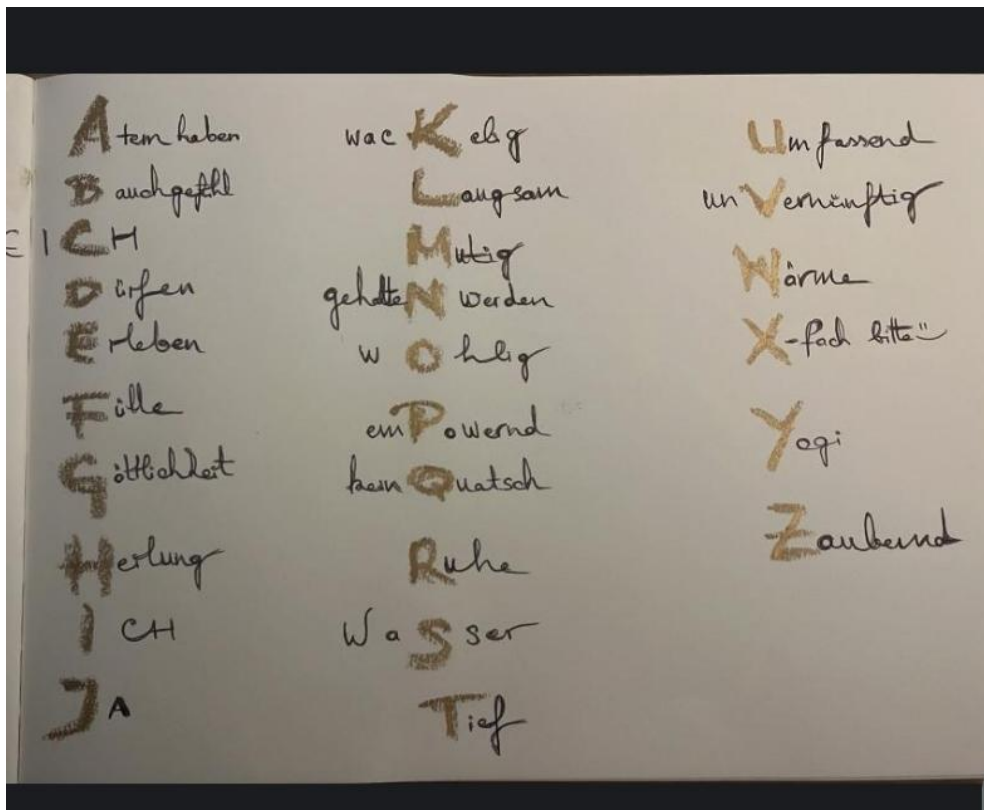 Atem haben
Bauchgefühl
ICH
Dürfen
Erleben
Fülle
Göttlichkeit
Heilung
ICH
JA
wacKelig
Langsam
Mutig
gehalteN werden
wOhlig
emPowernd
kein Quatsch
Ruhe
WaSser
Tief
Umfassend
unVernünftig
Wärme
X-fach bitte ü
Yogi
Zaubernd